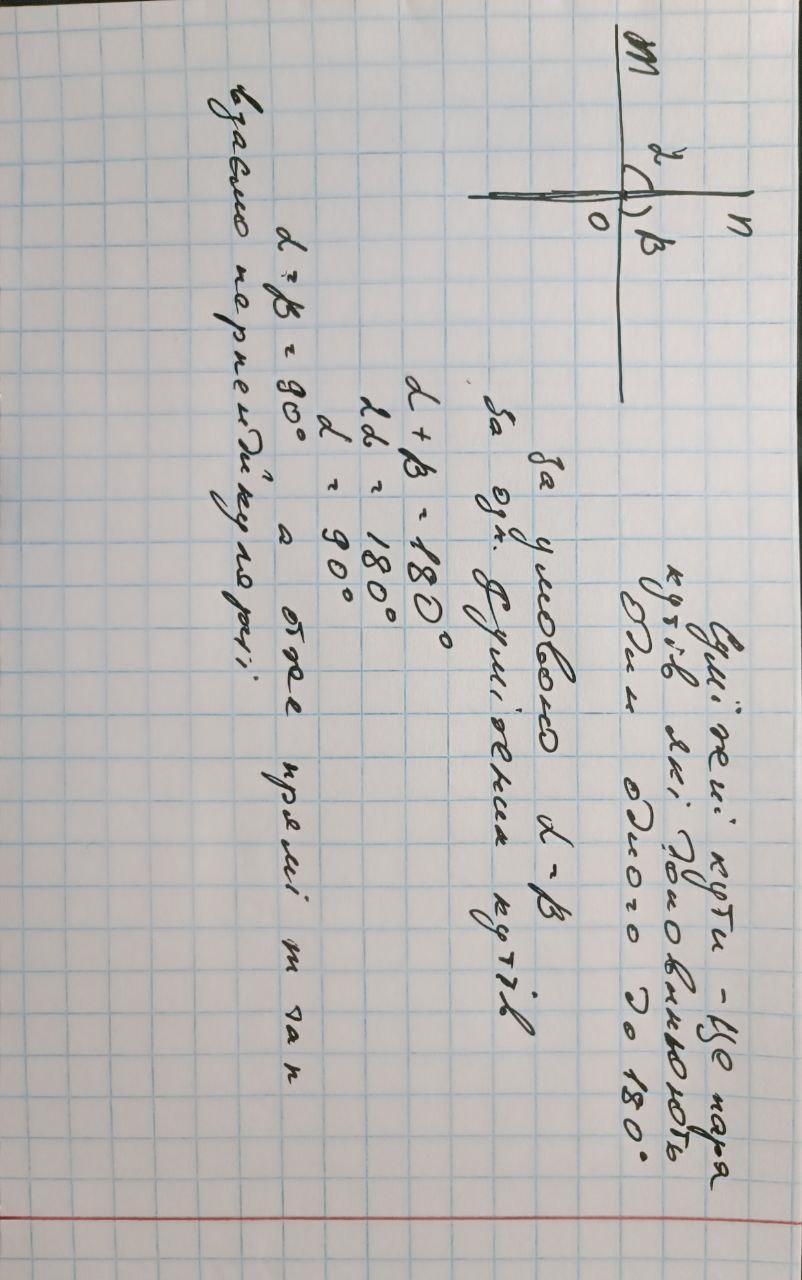 n
m
α
β
O
Суміжні кути - це пара
кутів які доповнюють
один одного до 180°
За умовою α = β
За озн. суміжних кутів
α + β = 180°
2α = 180°
α = 90°
α = β = 90° а отже прямі m та n
взаємо перпендикулярні